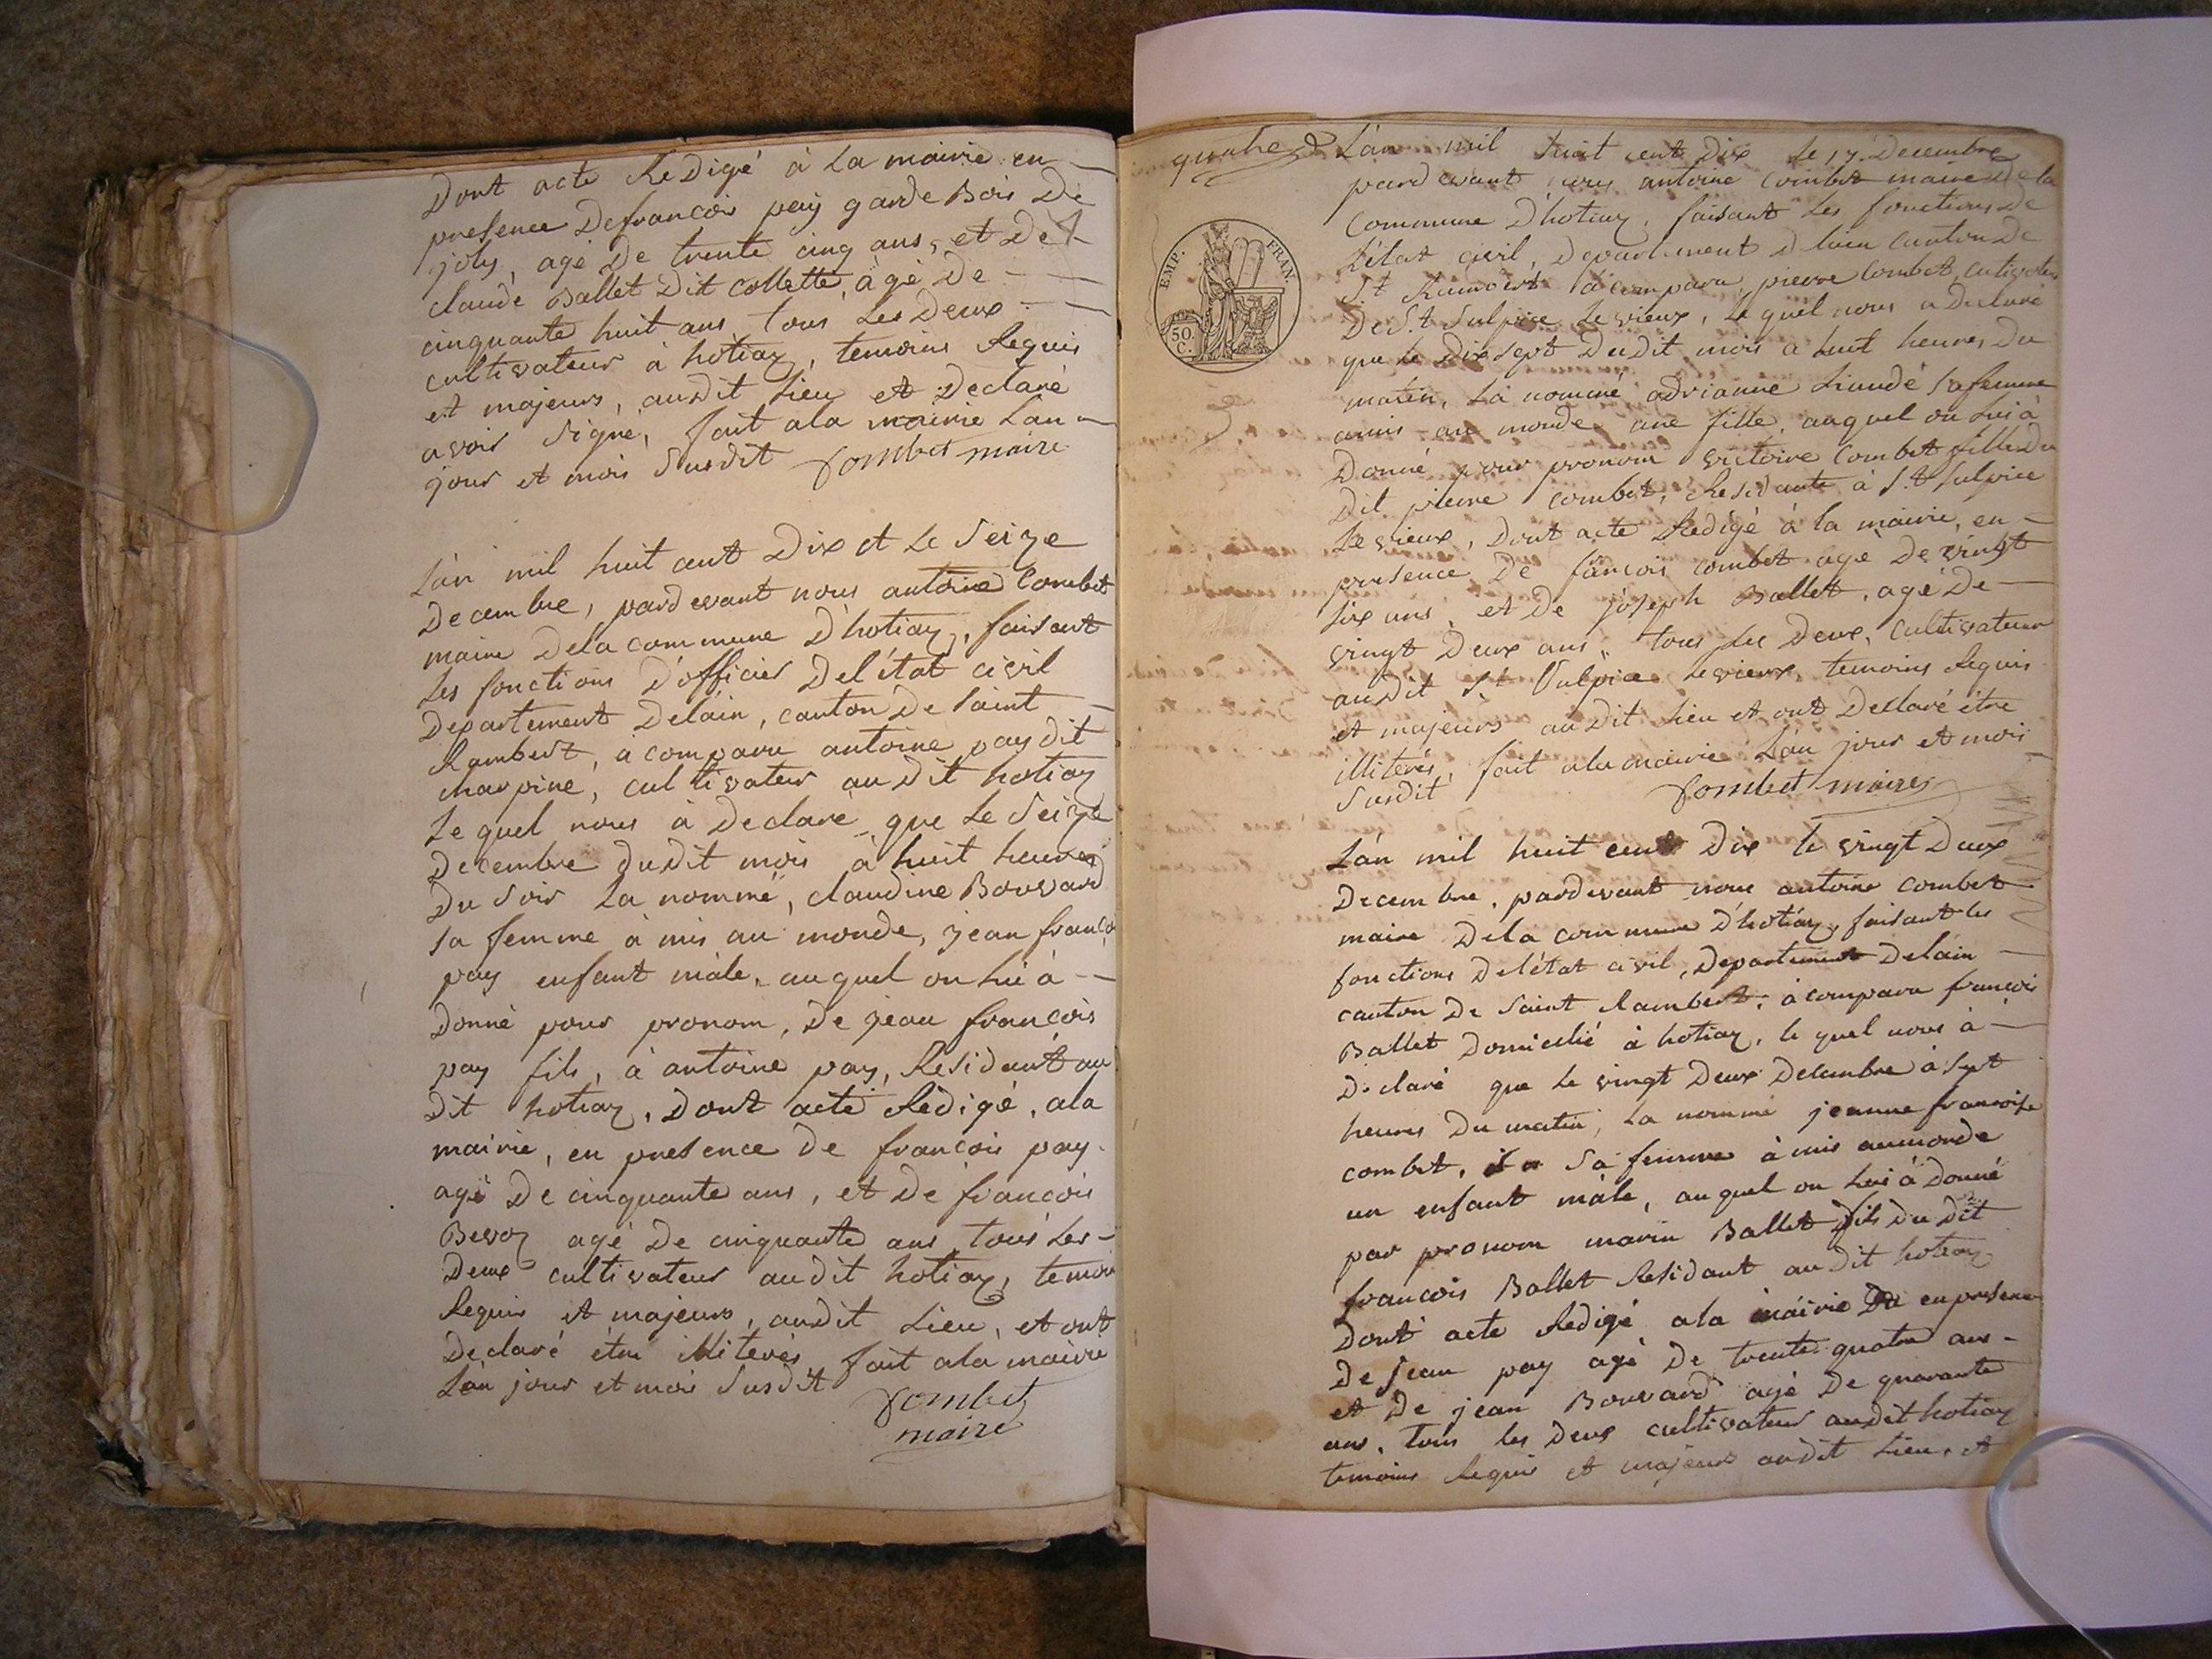 Dont acte Redigé à La mairie en
presence De francois pay garde Bois De
joly, agé De trente cinq ans, et De
claude Ballet Dit Collette, àgé De
cinquante huit ans tous Les Deux
cultivateur à hotiaz, temoins Requis
et majeurs, audit Lieu et Declaré
avoir Signé, fait ala mairie Lan
jour et mois Susdit Combet maire
L'àn mil huit cent Dix et Le Seize
Decembre, pardevant nous antoine Combet
maire Dela commune D'hotiaz, faisant
Les fonctions D'officier Del'état civil
Departement Delàin, canton De Saint
Rambert, a comparu antoine pay dit
charpine, cultivateur au dit hotiaz
Le quel nous à Declaré que Le Seize
Decembre dudit mois à huit heures
Du Soir La nommé, claudine Bouvard
Sa femme à mis au monde, jean franço
pay enfant màle, auquel on lui à
Donné pour pronom, De jean françois
pay fils, à antoine pay, Residant au
Dit hotiaz, Dont acte Redigé, ala
mairie, en presence De francois pay
agé De cinquante ans, et De francois
Bevoz agé De cinquante ans, tous Les
Deux cultivateur audit hotiaz, temoin
Requis et majeurs, audit Lieu, et ont
Declaré étre illiterés fait ala mairie
L'àn jour et mois Susdit
Combet
maire
quatre
L'àn mil huit cent Dix Le 17 Decembre
pardevant nous antoine Combet maire De la
Commune D'hotiaz, faisant Les fonctions De
L'état civil, Departement D Làin Canton De
S.t Rambert à comparu, pierre Combet, cutivateur
De S.t Sulpice Le vieux, Le quel nous a Declaré
que Le Dix Sept Dudit mois a huit heures Du
matin, La nommé adrianne Liaudé Sa femme
amis au monde une fille, auquel on Lui à
Donné pour pronom victoire Combet fille Du
Dit pierre combet, Residante à S.t Sulpice
Le vieux, Dont acte Redigé à la mairie, en
presence De fancois combet agé De vingt
Six ans, et De joseph Ballet, agé De
vingt Deux ans, tous Les Deux, cultivateur
audit St Sulpice Levieux, temoins Requis
et majeurs audit Lieu et ont Declaré étre
illiterés, fait ala mairie L'àn jour et mois
Susdit Combet maire
EMP. FRAN.
50 C.
L'àn mil huit cent Dix le vingt Deux
Decembre, pardevant nous antoine combet
maire Dela commune D'hotiaz, faisant les
fonctions Del'état civil, Departement Delàin
canton De Saint Rambert, à comparu françois
Ballet Domicilié à hotiaz, le quel nous à
Declaré que Le vingt Deux Decembre à Sept
heures Du matin, La nommé jeanne francoise
combet, Sa femme à mis aumonde
un enfant màle, auquel on Lui à Donné
par pronom marin Ballet fils du dit
francois Ballet Residant au dit hotiaz
Dont acte Redigé ala màirie en presence
De Jean pay agé De trente quatre ans
et De jean Bouvard agé De quarante
ans, tous les Deux cultivateur audit hotiaz
temoins Requis et majeurs audit Lieu, et